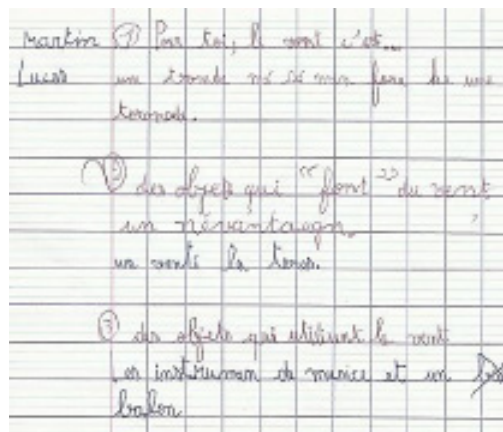 martin ① Pour toi, le vent c'est...
Lucas un tornade né si min fore les une
tornade.
② des objets qui "font" du vent
un névantaign.
un vente la teros.
③ des objets qui utilisent le vent
es instruman de musice et un
balon